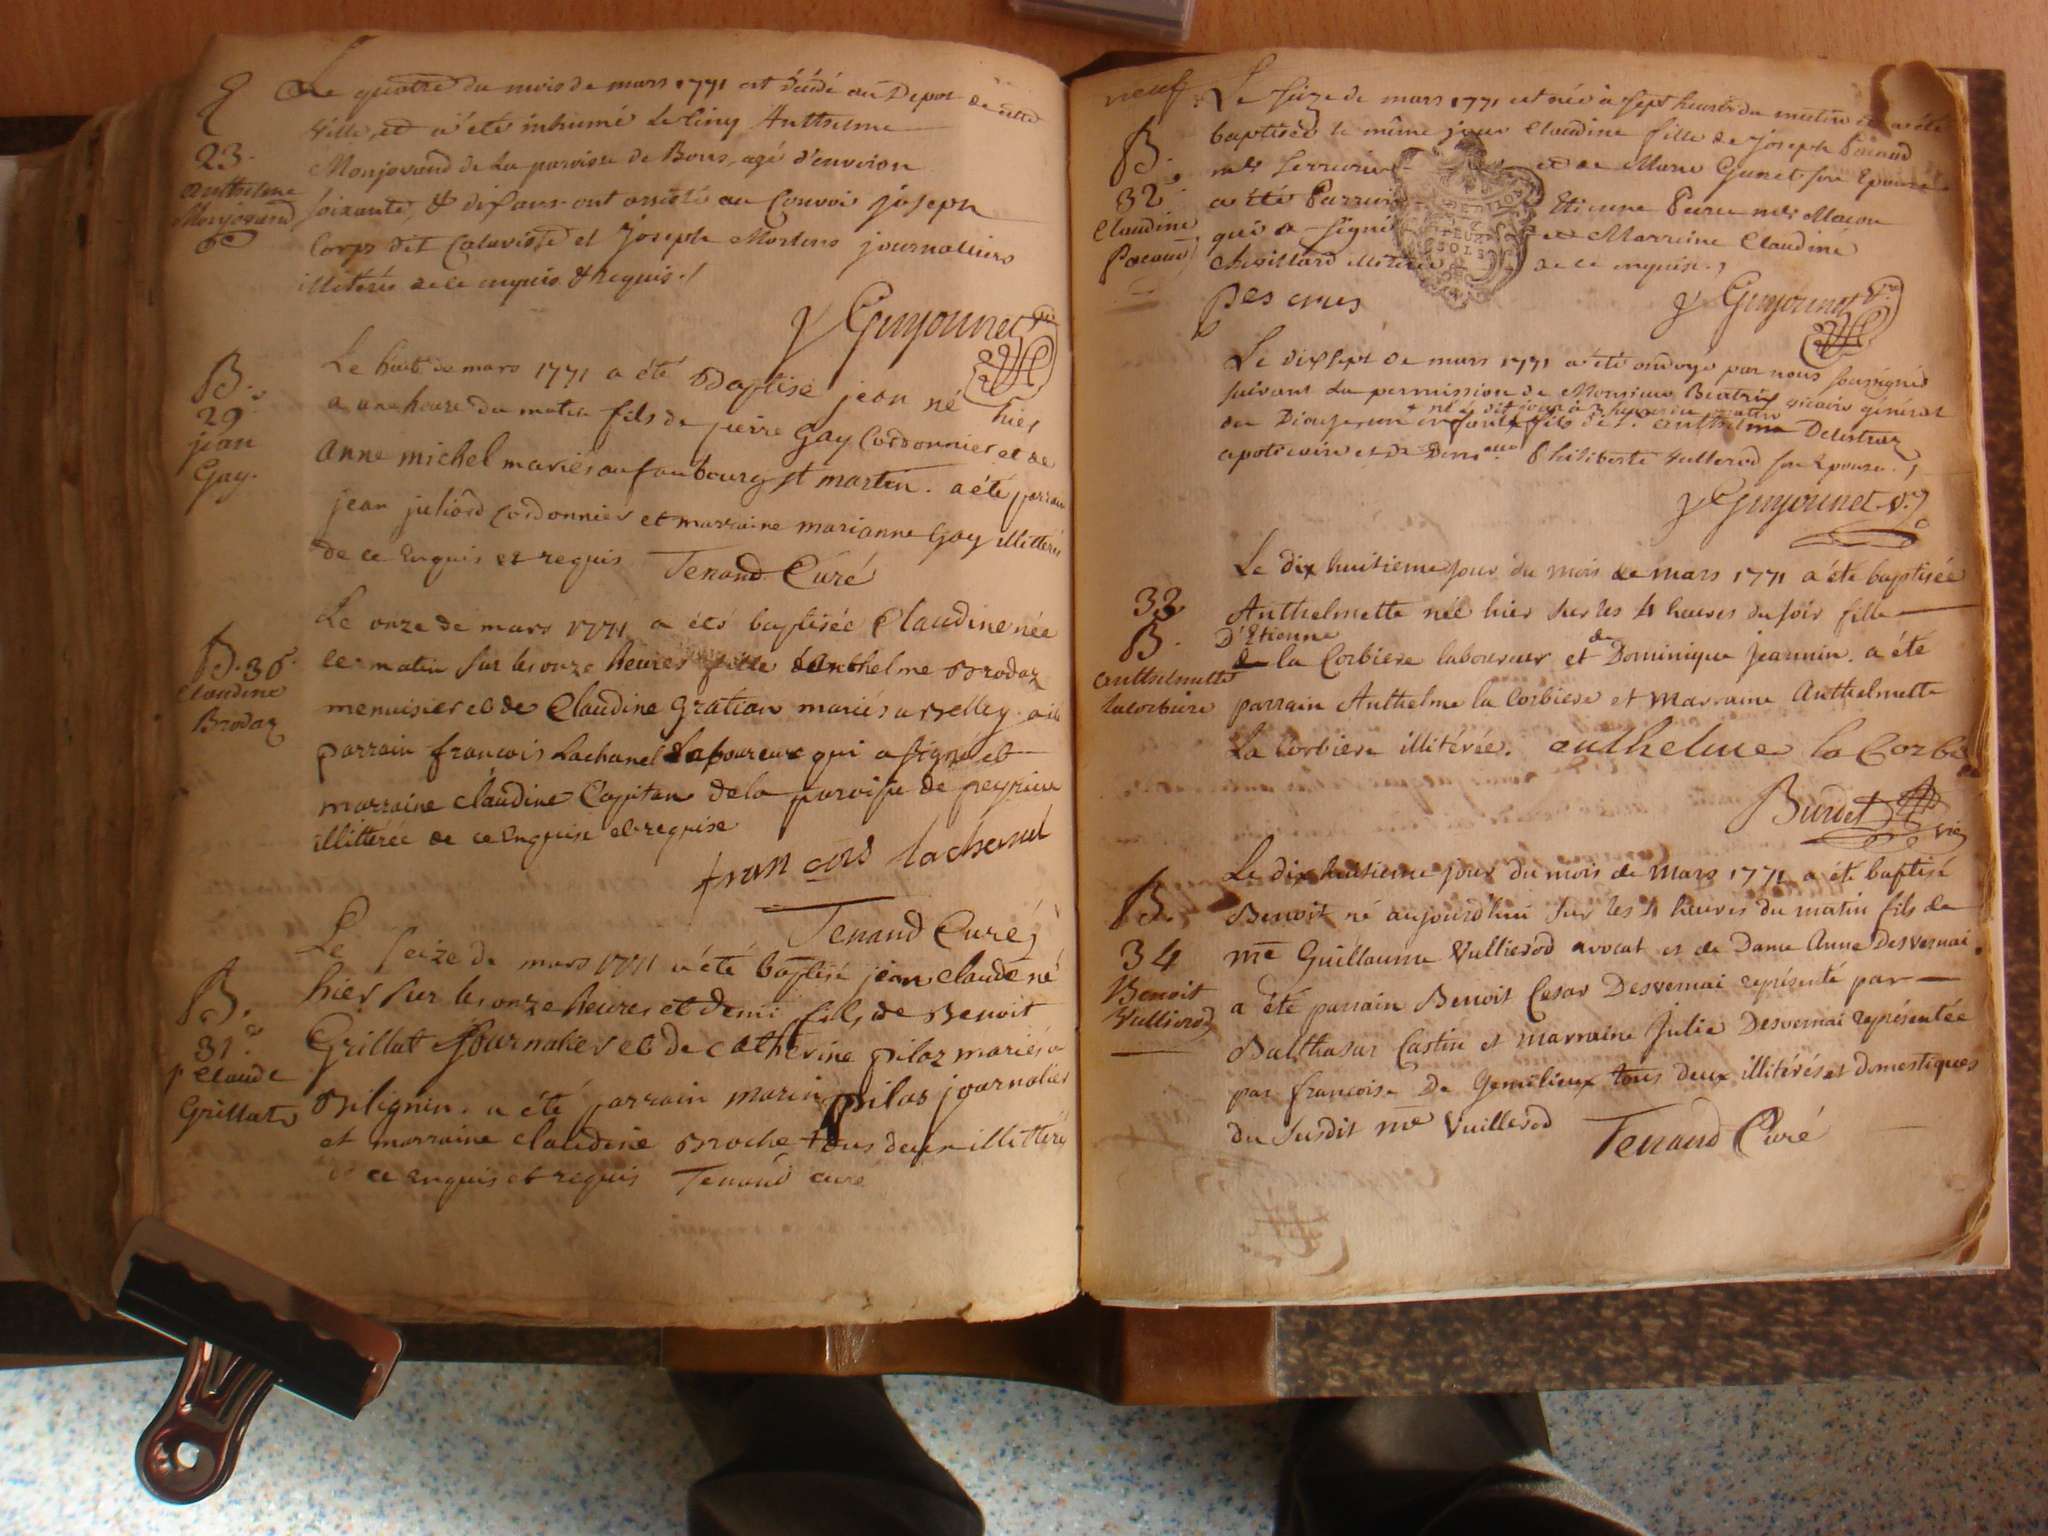 Le quatre du mois de mars 1771 est décédé au Depot de cette
ville, et a été inhumé le cinq Anthelme
Monjovand de la paroisse de Bons, agé d'environ
soixante, & dix ans ont assisté au Convoi joseph
Corps dit et Joseph journaliers
illiterés de ce enquis & requis.
23.
Anthelme
Monjovand
Guyonnet
B.
29
jean
Gay.
Le huit de mars 1771 a été Baptisé jean né hier
a une heure du matin fils de pierre Gay Cordonnier et de
anne michel mariés au faubourg st martin. a été parrain
jean juliard Cordonnier et marraine marianne Gay illitterés
de ce Enquis et requis Tenand Curé
B. 30
Claudine
Brodaz
Le onze de mars 1771 a été baptisée Claudine née
ce matin sur les onze heures fille d'anthelme Brodaz
menuisier et de Claudine Gratian mariés a Belley. a été
parrain francois Lachanel Laboureur qui a signé et
marraine claudine Capitan de la paroisse de peyrieu
illitterée de ce Enquise et requise
francois lachanel
Tenand Curé
B.
31
j Claude
Grillat
Le seize de mars 1771 a été baptisé jean claude né
hier sur les onze heures et demi fils de Benoit
Grillat journalier et de catherine pilaz mariés a
Bilignin. a été parrain marin pilas journalier
et marraine claudine Broche tous deux illitterés
de ce enquis et requis Tenand curé
neuf
B.
32
Claudine
Pacoud
Le seize de mars 1771 est née à sept heures du matin et a été
baptisée le même jour Claudine fille de joseph Pacoud
me serrurier et de Marie Gunet son Epouse
a été Parrain Etienne me Macon
qui a signé et Marraine Claudine
Chevillard illiterée de ce enquise.
Guyonnet
Le dix sept de mars 1771 a été ondoyé par nous soussignés
suivant la permission de Monsieur Beatrix vicaire général
du Diocese, un enfant fils de Sr. anthelme
apoticaire et de Demlle Philiberte vullerod son Epouse.
Guyonnet
33
B.
Anthelmette
lacorbiere
Le dix huitieme jour du mois de mars 1771 a été baptisée
Anthelmette née hier sur les 4 heures du soir fille
D'Etienne
de la Corbiere laboureur et de Dominique Jeannin. a été
parrain Anthelme la Corbiere et Marraine Anthelmette
La Corbiere illitérée. anthelme la Corbi
Burdet vic
B.
34
Benoit
Vullierod
Le dix huitieme jour du mois de Mars 1771 a été baptisé
Benoit né aujourd'hui sur les 4 heures du matin fils de
me Guillaume Vullierod avocat et de Dame Anne Desvernai
a été parrain Benoit Cesar Desvernai représenté par
Balthasar Castin et marraine Julie Desvernai représentée
par francoise De Gemilieux tous deux illitérés et domestiques
du susdit me Vuillerod Tenand Curé